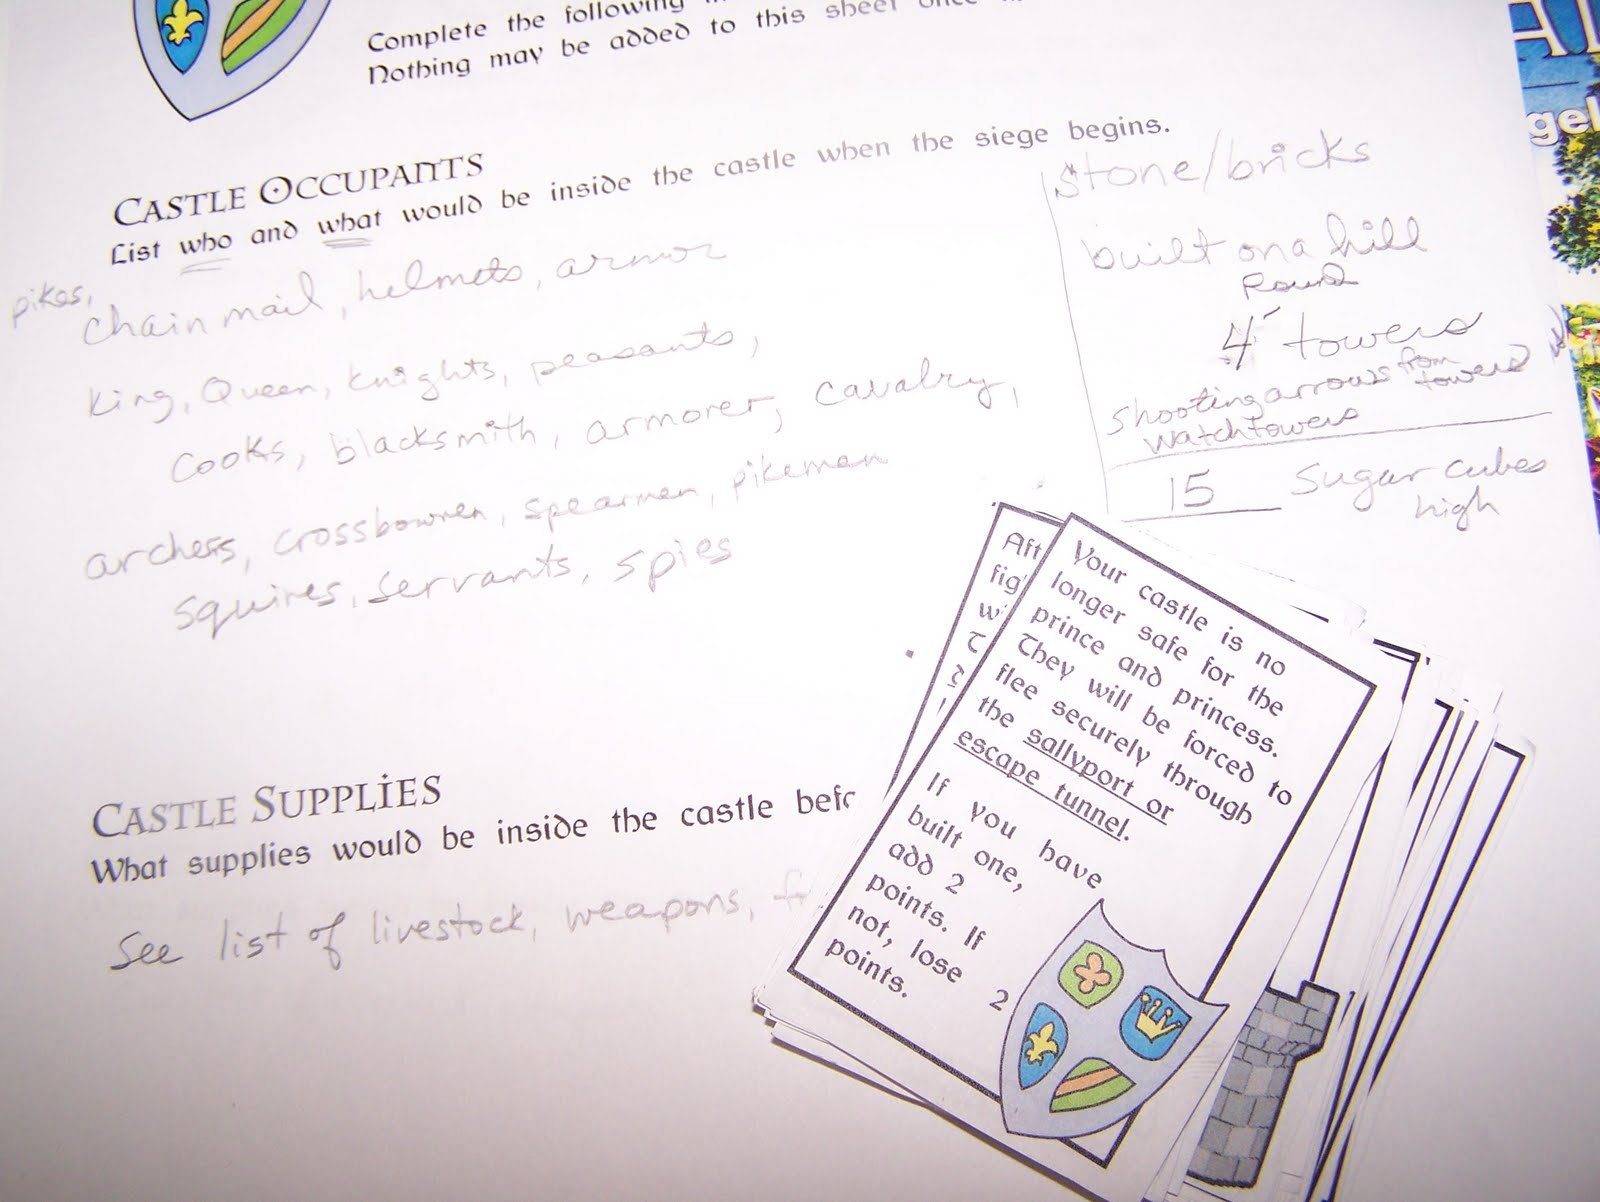 Complete the following
Nothing may be added to this sheet once
CASTLE OCCUPANTS
List who and what would be inside the castle when the siege begins.
pikes,
chain mail, helmets, armor
King, Queen, knights, peasants,
cooks, blacksmith, armorer, cavalry,
archers, crossbowmen, spearmen, pikeman
squires, servants, spies
stone/bricks
built on a hill
Round
4 towers
shooting arrows from towers
watchtowers
15 sugar cubes
high
CASTLE SUPPLIES
What supplies would be inside the castle befo
See list of livestock, weapons, f
Aft
fig
w
T
Your castle is no
longer safe for the
prince and princess.
They will be forced to
flee securely through
the sallyport or
escape tunnel.
If you have
built one,
add 2
points. If
not, lose 2
points.
gel